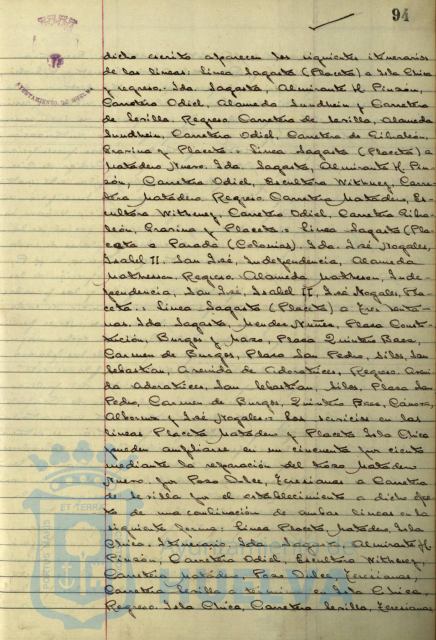 94
AYUNTAMIENTO DE HUELVA
dicho escrito aparecen los siguientes itinerarios
de las lineas: linea Sagasta (Placeta) a Isla Chica
y regreso. Ida. Sagasta, Almirante H. Pinzón,
Carretera Odiel, Alameda Sundhein y Carretera
de Sevilla. Regreso. Carretera de Sevilla, Alameda
Sundhein, Carretera Odiel, Carretera de Gibraleón,
Gravina y Placeta.- linea Sagasta (Placeta) a
Matadero Nuevo. Ida. Sagasta, Almirante H. Pin-
zón, Carretera Odiel, Escultora Withney, Carre-
tera Matadero. Regreso. Carretera Matadero, Es-
cultora Withney, Carretera Odiel, Carretera Gibra-
león, Gravina y Placeta.- linea Sagasta (Pla-
ceta a Parada (Colonias). Ida. José Nogales,
Isabel II, San José, Independencia, Alameda
Matheson. Regreso. Alameda Matheson, Inde-
pendencia, San José, Isabel II, José Nogales, Pla-
ceta.- linea Sagasta (Placeta) a Tres Venta-
nas. Ida. Sagasta, Mendez Nuñez, Plaza Consti-
tución, Burgos y Mazo, Plaza Quintero Baez,
Carmen de Burgos, Plaza San Pedro, Silos, San
Sebastian, Avenida de Adoratrices, Regreso. Aveni-
da Adoratrices, San Sebastian, Silos, Plaza San
Pedro, Carmen de Burgos, Quintero Baez, Cánovas,
Albornoz y José Nogales.- Los servicios en las
lineas Placeta Matadero y Placeta Isla Chica
pueden ampliarse en un cincuenta por ciento
mediante la reparación del trozo Matadero
Nuevo, por Pozo Dulce, Teresianas a Carretera
de Sevilla por el establecimiento a dicho efec-
to de una combinación de ambas lineas en la
siguiente forma: linea Placeta, Matadero, Isla
Chica. Itinerario. Ida. Sagasta, Almirante H.
Pinzón, Carretera Odiel, Escultora Withney,
Carretera Matadero, Pozo Dulce, Teresianas,
Carretera Sevilla a término en Isla Chica,
Regreso. Isla Chica, Carretera Sevilla, Teresianas